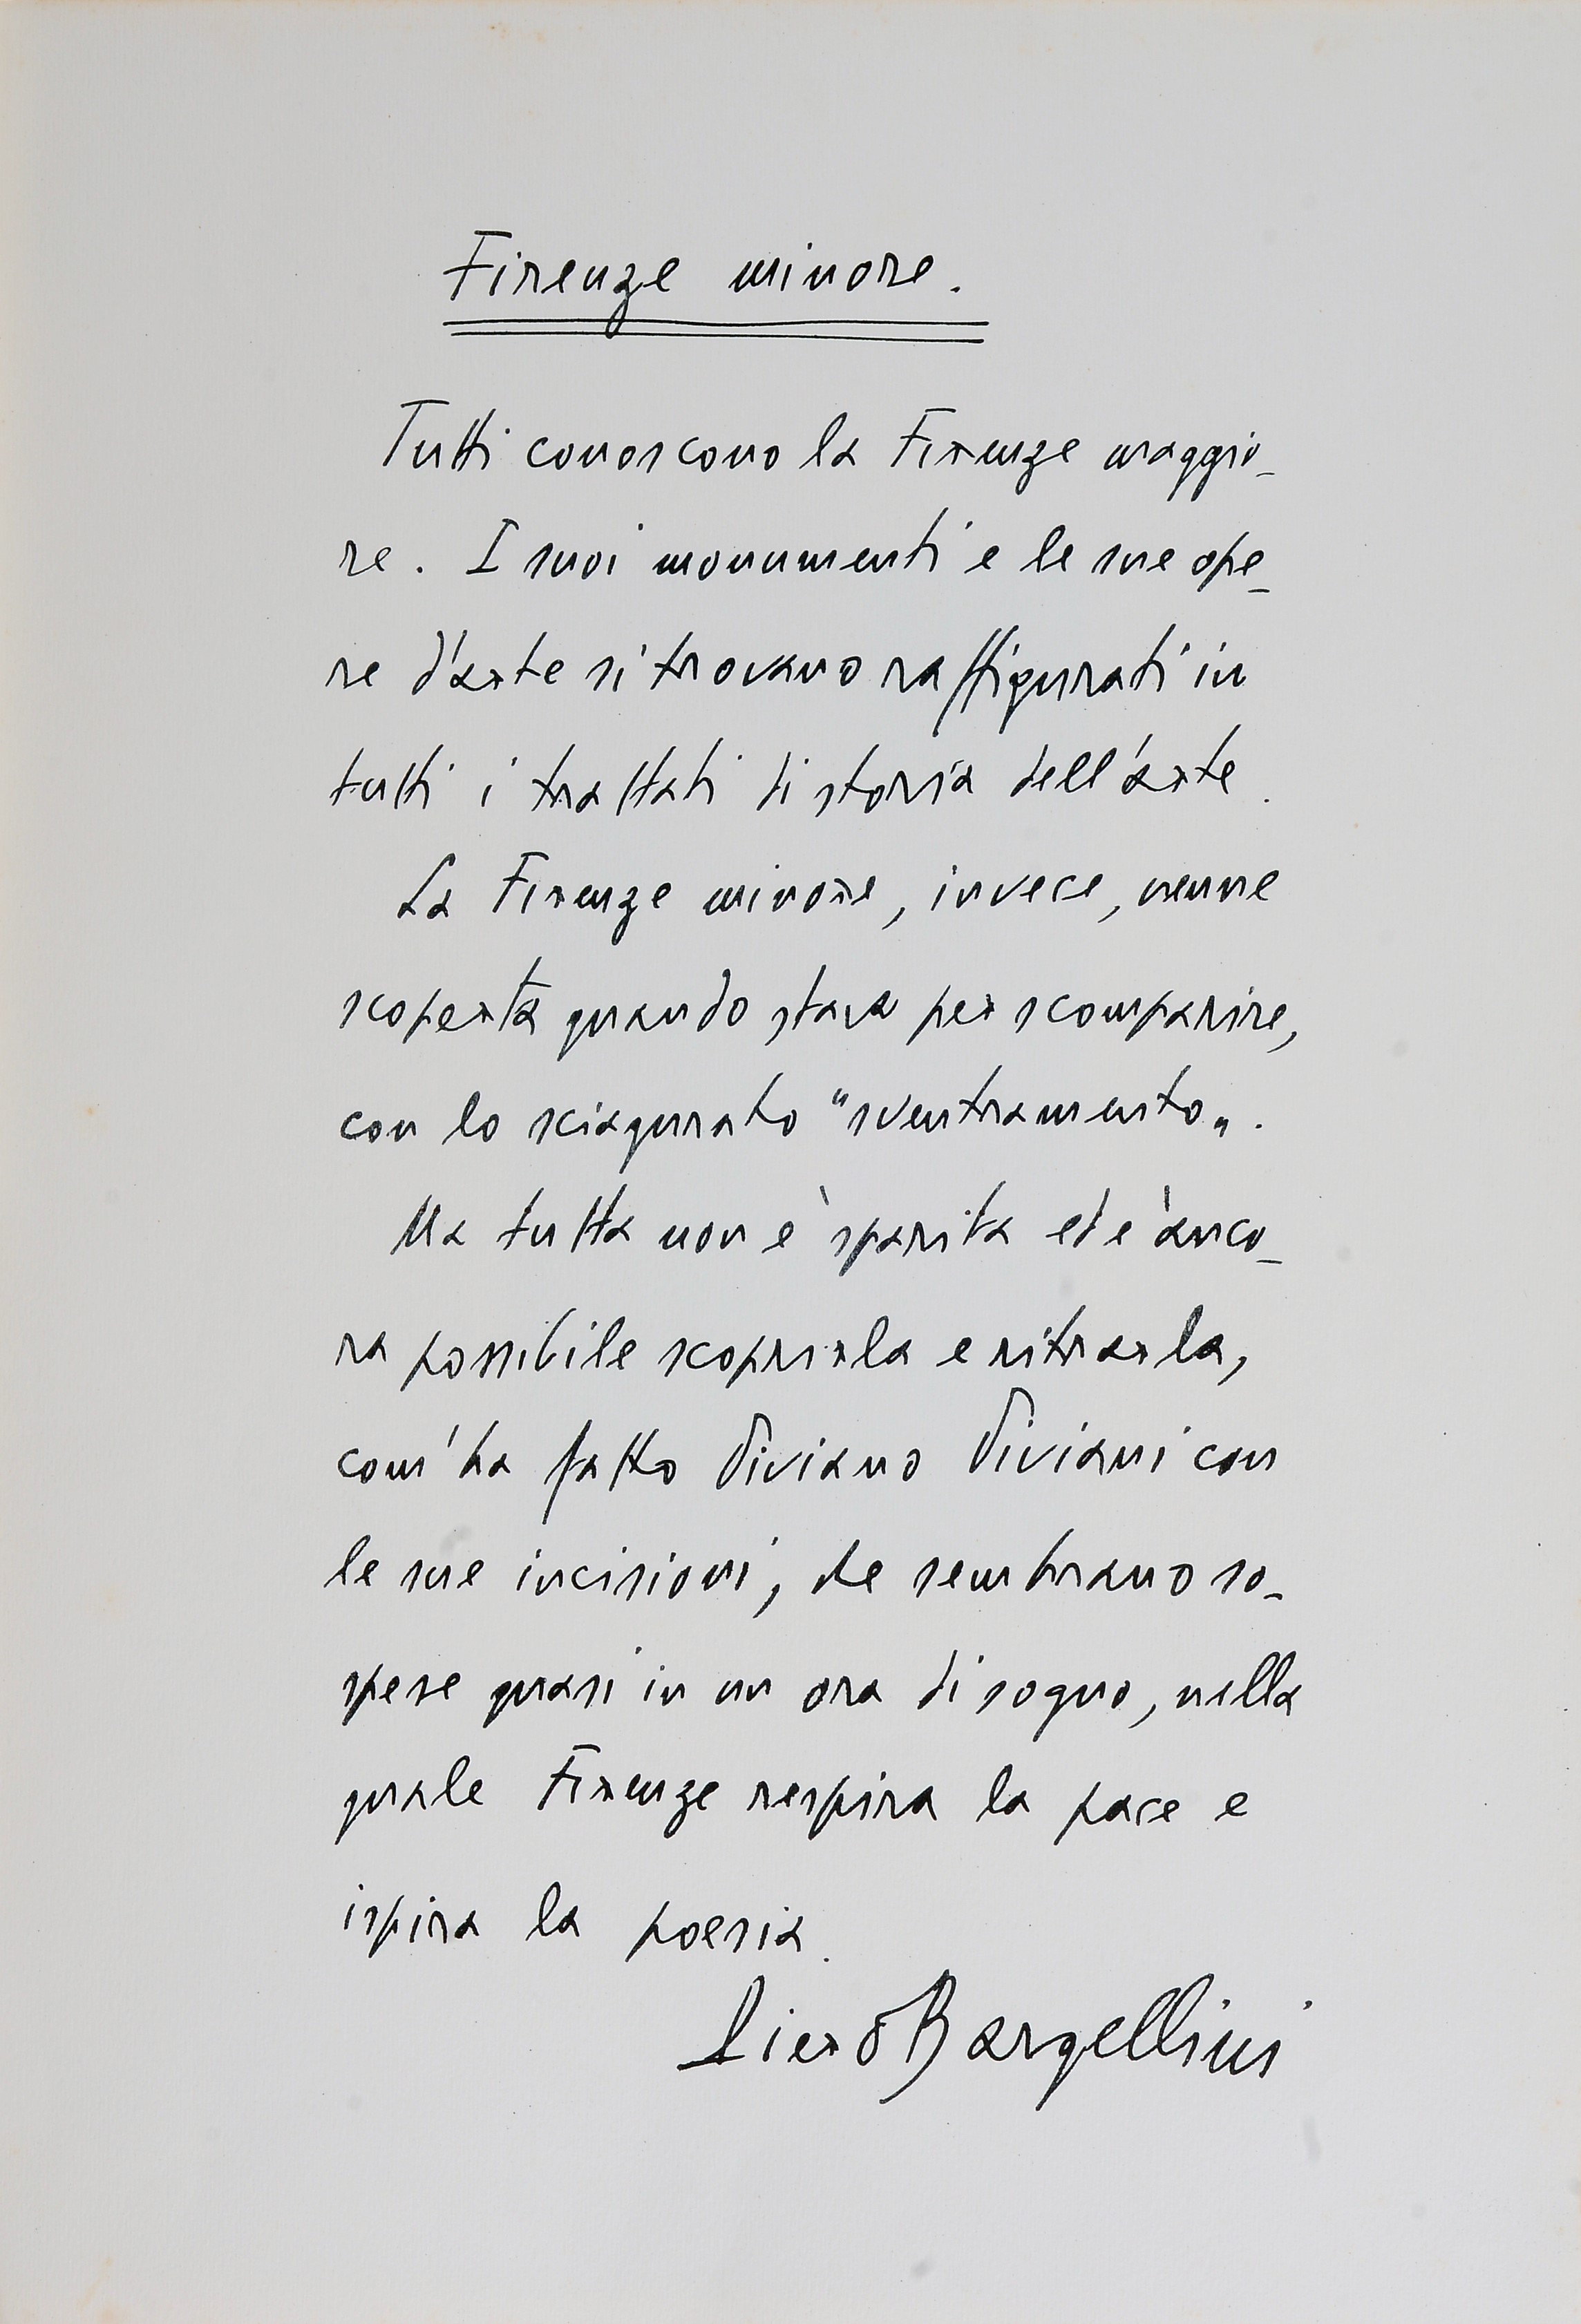 Firenze minore.
Tutti conoscono la Firenze maggio-
re. I suoi monumenti e le sue ope-
re d'arte si trovano raffigurati in
tutti i trattati di storia dell'arte.
La Firenze minore, invece, venne
scoperta quando stava per scomparire,
con lo sciagurato "sventramento„.
Ma tutta non è sparita ed è anco-
ra possibile scoprirla e ritrarla,
com'ha fatto Viviano Viviani con
le sue incisioni, che sembrano so-
spese quasi in un ora di sogno, nella
quale Firenze respira la pace e
ispira la poesia.
Piero Bargellini